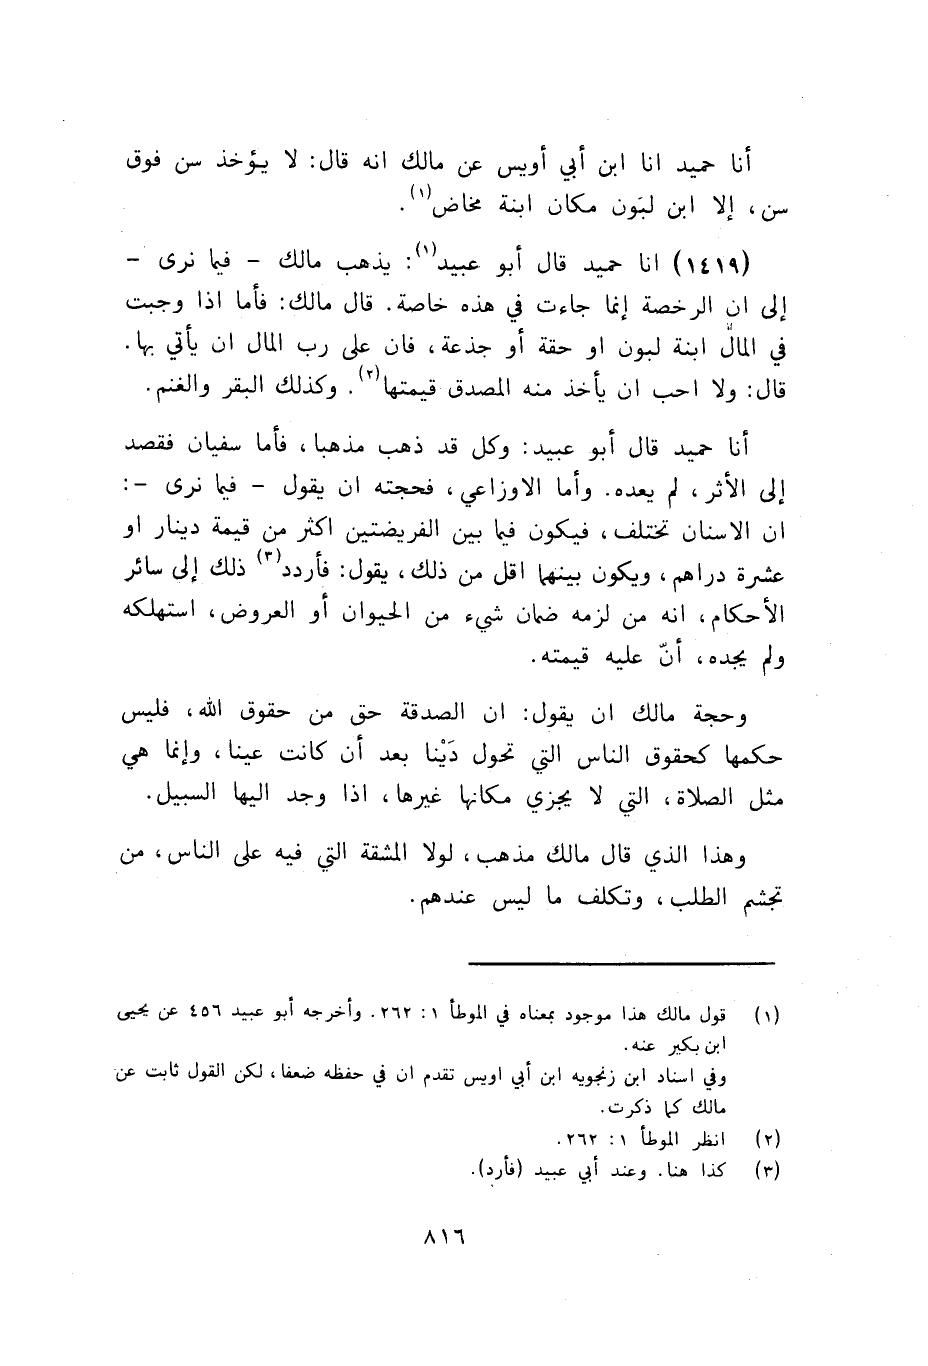 أنا حميد انا ابن أبي أويس عن مالك انه قال: لا يؤخذ سن فوق
سن، إلا ابن لبَون مكان ابنة مخاض(١).
(١٤١٩) انا حميد قال أبو عبيد(١): يذهب مالك - فيما نرى -
إلى ان الرخصة إنما جاءت في هذه خاصة. قال مالك: فأما اذا وجبت
في المال ابنة لبون او حقة أو جذعة، فان على رب المال ان يأتي بها.
قال: ولا احب ان يأخذ منه المصدق قيمتها(٢). وكذلك البقر والغنم.
أنا حميد قال أبو عبيد: وكل قد ذهب مذهبا، فأما سفيان فقصد
إلى الأثر، لم يعده. وأما الاوزاعي، فحجته ان يقول - فيما نرى -:
ان الاسنان تختلف، فيكون فيما بين الفريضتين اكثر من قيمة دينار او
عشرة دراهم، ويكون بينهما اقل من ذلك، يقول: فأردد(٣) ذلك إلى سائر
الأحكام، انه من لزمه ضمان شيء من الحيوان أو العروض، استهلكه
ولم يجده، أنّ عليه قيمته.
وحجة مالك ان يقول: ان الصدقة حق من حقوق الله، فليس
حكمها كحقوق الناس التي تحول دَيْنا بعد أن كانت عينا، وإنما هي
مثل الصلاة، التي لا يجزي مكانها غيرها، اذا وجد اليها السبيل.
وهذا الذي قال مالك مذهب، لولا المشقة التي فيه على الناس، من
تجشم الطلب، وتكلف ما ليس عندهم.
(١) قول مالك هذا موجود بمعناه في الموطأ ١: ٢٦٢. وأخرجه أبو عبيد ٤٥٦ عن يحيى
ابن بكير عنه.
وفي اسناد ابن زنجويه ابن أبي اويس تقدم ان في حفظه ضعفا، لكن القول ثابت عن
مالك كما ذكرت.
(٢) انظر الموطأ ١: ٢٦٢.
(٣) كذا هنا. وعند أبي عبيد (فأرد).
٨١٦